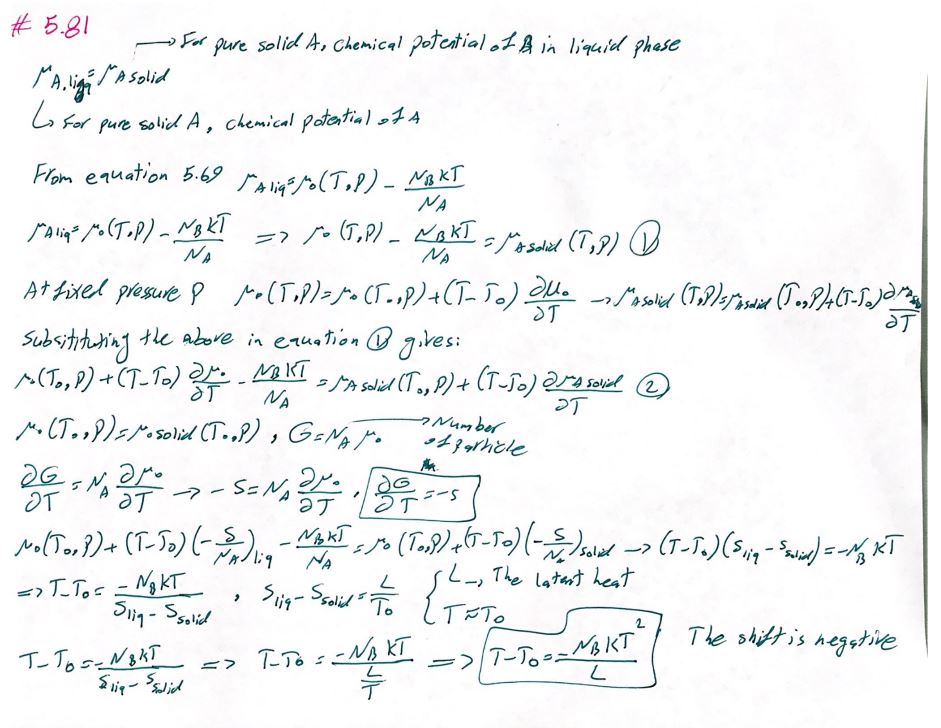 # 5.81
→ For pure solid A, chemical potential of B in liquid phase
μA,liq = μA solid
↳ For pure solid A, chemical potential of A
From equation 5.69 μA liq = μ₀(T,P) - NB KT / NA
μA liq = μ₀(T,P) - NB KT / NA => μ₀(T,P) - NB KT / NA = μA solid (T,P) ①
At fixed pressure P μ₀(T,P) = μ₀(T₀,P) + (T-T₀) ∂μ₀/∂T → μA solid (T,P) = μA solid (T₀,P) + (T-T₀) ∂μA solid/∂T
Subsitituting the above in equation ① gives:
μ₀(T₀,P) + (T-T₀) ∂μ₀/∂T - NB KT / NA = μA solid (T₀,P) + (T-T₀) ∂μA solid/∂T ②
μ₀(T₀,P) = μ₀ solid (T₀,P), G = NA μ₀ → Number of Particle
∂G/∂T = NA ∂μ₀/∂T → -S = NA ∂μ₀/∂T, ∂G/∂T = -S
μ₀(T₀,P) + (T-T₀)(-S/NA)liq - NB KT / NA = μ₀(T₀,P) + (T-T₀)(-S/NA)solid → (T-T₀)(Sliq - Ssolid) = -NB KT
=> T-T₀ = -NB KT / (Sliq - Ssolid), Sliq - Ssolid = L/T₀ { L → The latent heat
T ≈ T₀
T-T₀ = -NB KT / (Sliq - Ssolid) => T-T₀ = -NB KT / (L/T) => T-T₀ = -NB KT² / L The shift is negative